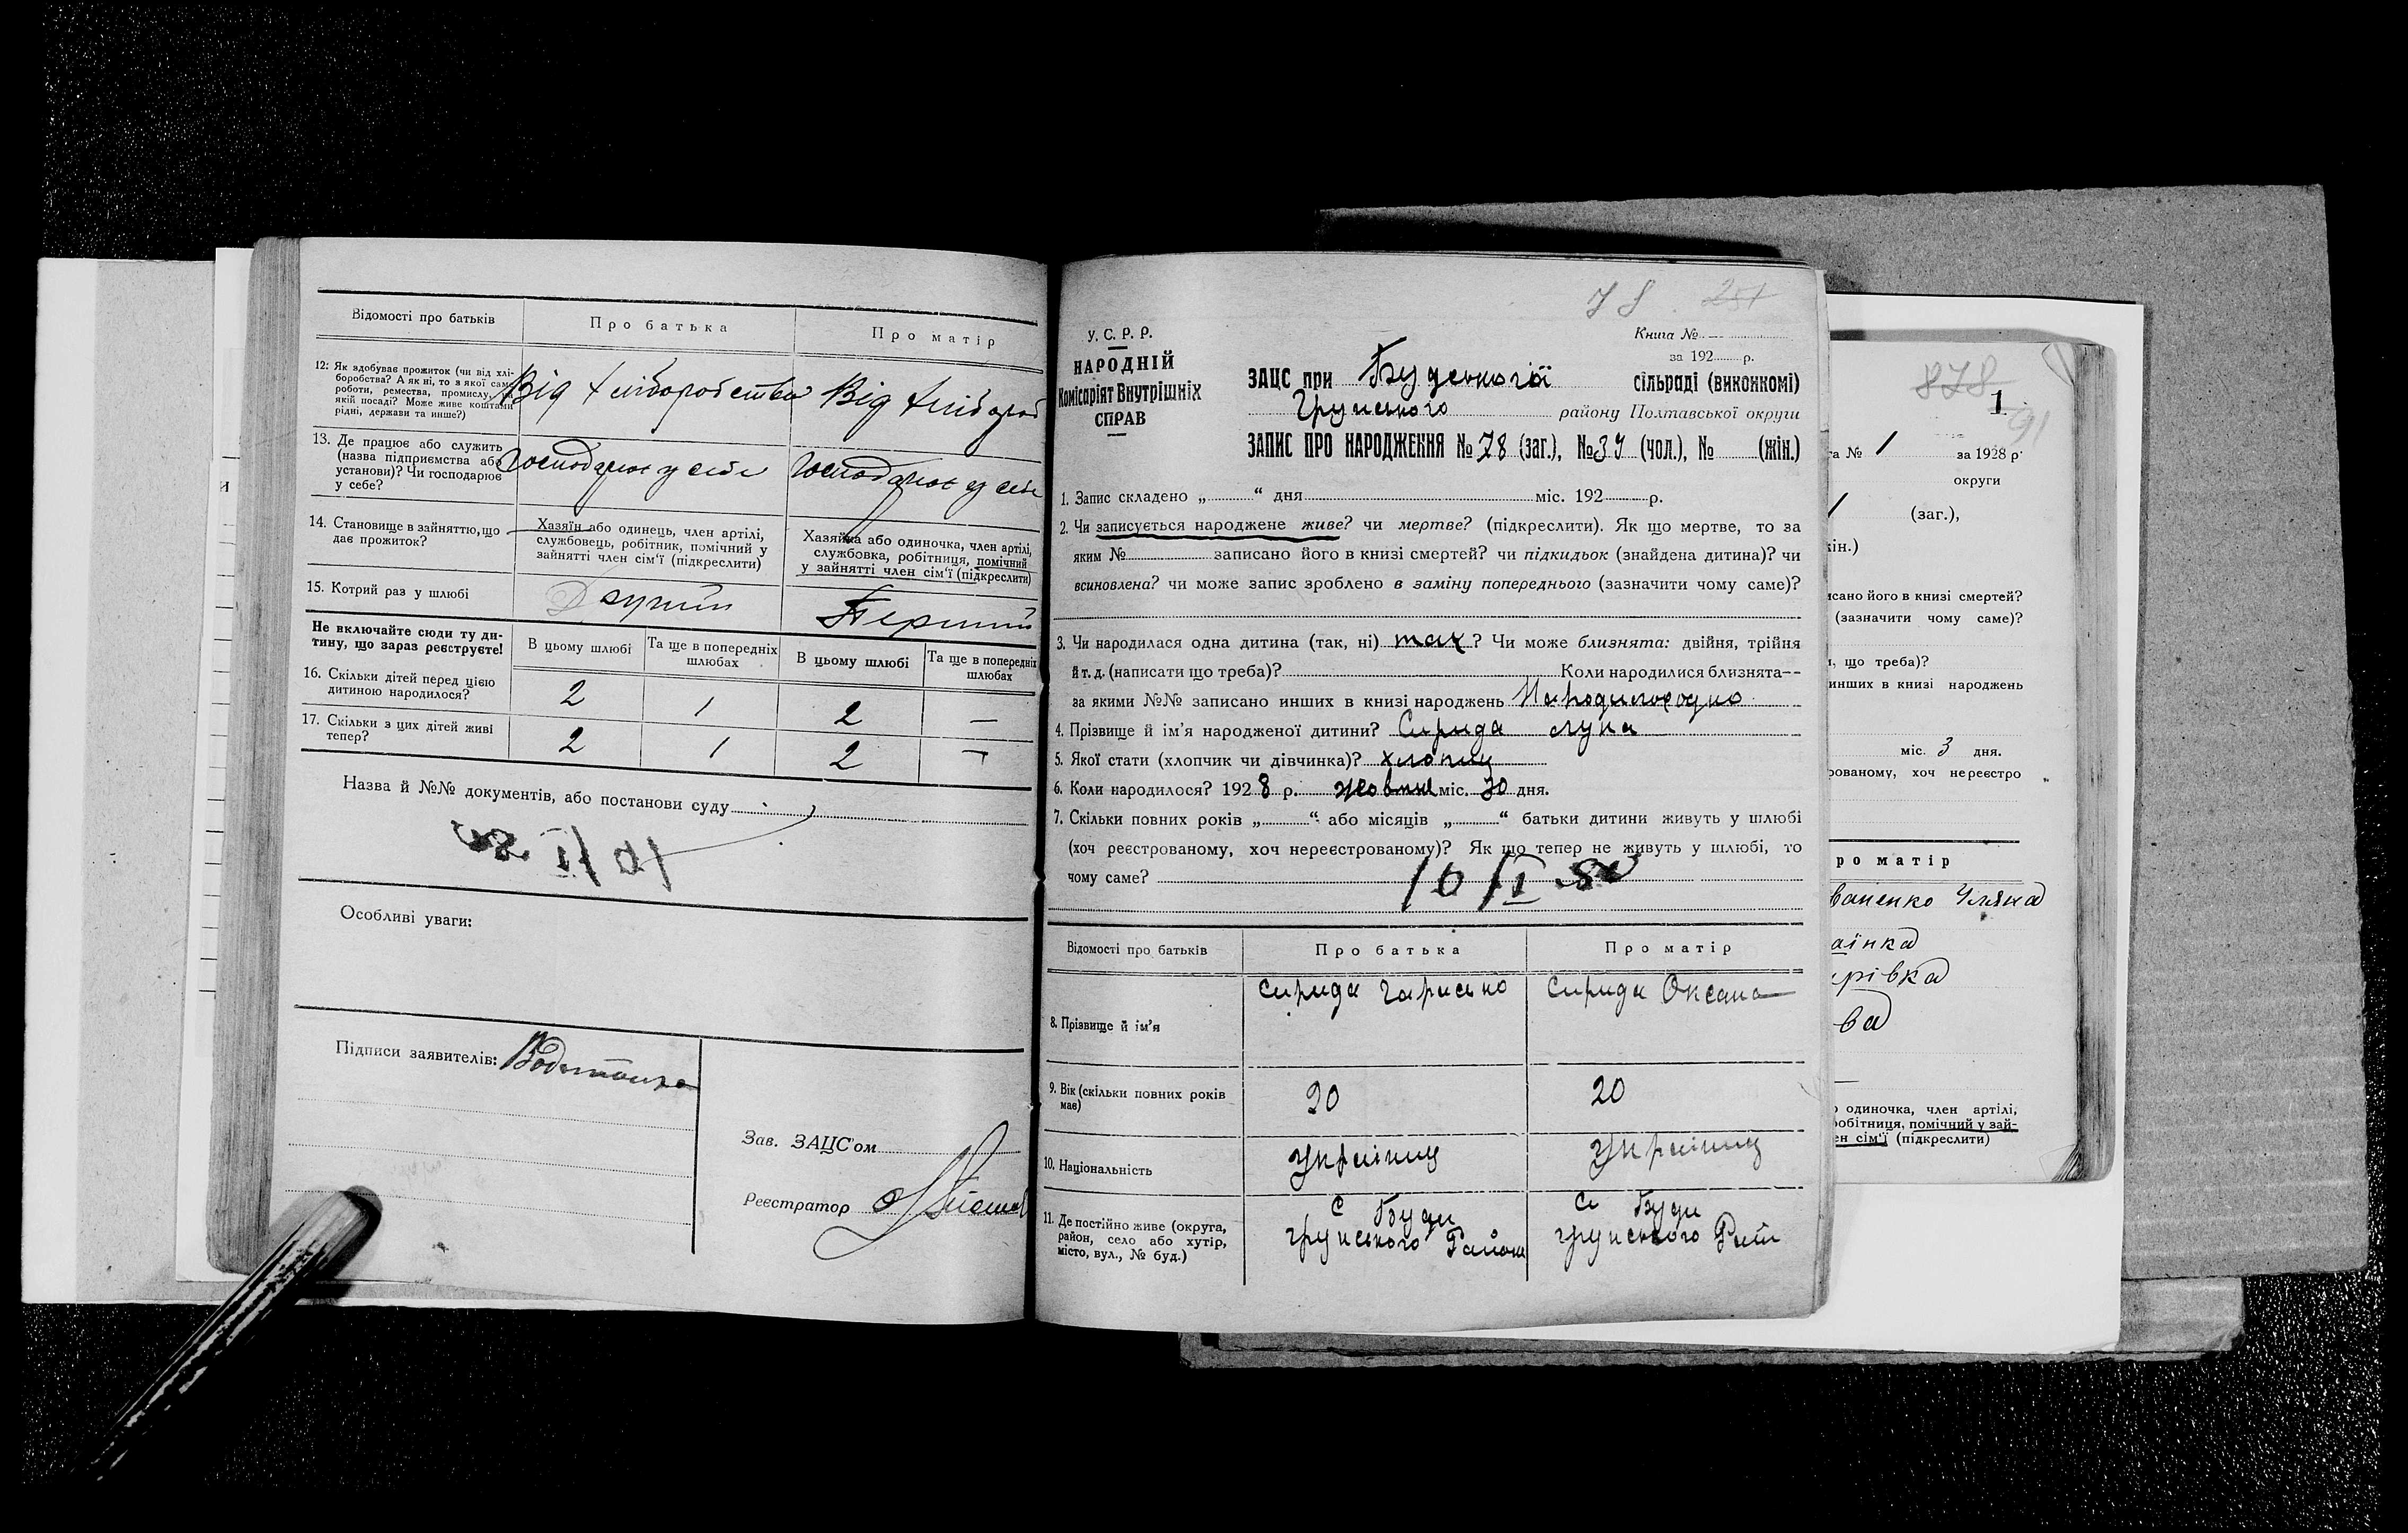 Відомості про батьків
Про батька
Про матір
12. Як здобуває прожиток (чи від хлі-
боробства? А як ні, то з якої саме
роботи, ремества, промислу, на
якій посаді? Може живе коштами
рідні, держави та инше?)
Від хліборобства
Від хлібороб
13. Де працює або служить
(назва підприємства або
установи)? Чи господарює
у себе?
Господарює у себе
Господарює у себе
14. Становище в зайняттю, що
дає прожиток?
Хазяїн або одинець, член артілі,
службовець, робітник, помічний у
зайнятті член сім'ї (підкреслити)
Хазяйка або одиночка, член артілі,
службовка, робітниця, помічний
у зайнятті член сім'ї (підкреслити)
15. Котрий раз у шлюбі
Другий
Перший
Не включайте сюди ту ди-
тину, що зараз реєструєте!
В цьому шлюбі
Та ще в попередніх
шлюбах
В цьому шлюбі
Та ще в попередніх
шлюбах
16. Скільки дітей перед цією
дитиною народилося?
2 1 2 —
17. Скільки з цих дітей живі
тепер?
2 1 2 —
Назва й №№ документів, або постанови суду
Особливі уваги:
Підписи заявителів:
Зав. ЗАЦС'ом
Реєстратор
78 251
У. С. Р. Р.
НАРОДНІЙ
Комісаріят Внутрішніх
СПРАВ
Книга №
за 192 р.
ЗАЦС при Будської сільраді (виконкомі)
Грунського району Полтавської округи
ЗАПИС ПРО НАРОДЖЕННЯ № 78 (заг.), № 39 (чол.), № (жін.)
1. Запис складено „ “ дня міс. 192 р.
2. Чи записується народжене живе? чи мертве? (підкреслити). Як що мертве, то за
яким № записано його в книзі смертей? чи підкидьок (знайдена дитина)? чи
всиновлена? чи може запис зроблено в заміну попереднього (зазначити чому саме)?
3. Чи народилася одна дитина (так, ні) так? Чи може близнята: двійня, трійня
й т. д. (написати що треба)? Коли народилися близнята—
за якими №№ записано инших в книзі народжень
4. Прізвище й ім'я народженої дитини? Сирида Лука
5. Якої стати (хлопчик чи дівчинка)? хлопец
6. Коли народилося? 1928 р. жовтня міс. 30 дня.
7. Скільки повних років „ “ або місяців „ “ батьки дитини живуть у шлюбі
(хоч реєстрованому, хоч нереєстрованому)? Як що тепер не живуть у шлюбі, то
чому саме?
10/I
Відомості про батьків
Про батька
Про матір
8. Прізвище й ім'я
Сирида Гарасько
Сирида Оксана
9. Вік (скільки повних років
має)
20
10. Національність
Українец
Українец
11. Де постійно живе (округа,
район, село або хутір,
місто, вул., № буд.)
с Буди
Грунського Району
с Буди
Грунського
878
1
91
га № 1 за 1928 р.
округи
1 (заг.),
жін.)
исано його в книзі смертей?
(зазначити чому саме)?
и, що треба)?
инших в книзі народжень
міс. 3 дня.
рованому, хоч нереєстро
ро матір
ваненко Уляна
аїнка
ва
о одиночка, член артілі,
робітниця, помічний у зай-
ен сім'ї (підкреслити)